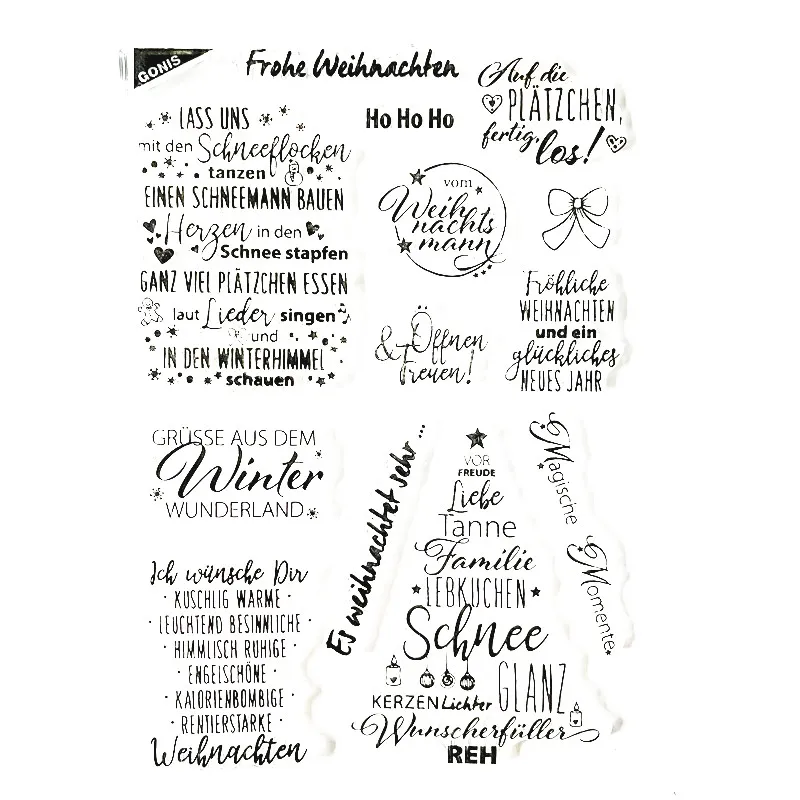 GONIS
Frohe Weihnachten
Auf die
PLÄTZCHEN,
fertig,
los!
Ho Ho Ho
LASS UNS
mit den Schneeflocken
tanzen
EINEN SCHNEEMANN BAUEN
Herzen in den
Schnee stapfen
GANZ VIEL PLÄTZCHEN ESSEN
laut Lieder singen
und
IN DEN WINTERHIMMEL
schauen
vom
Weih
nachts
mann
Öffnen
& freuen!
Fröhliche
WEIHNACHTEN
und ein
glückliches
NEUES JAHR
GRÜSSE AUS DEM
Winter
WUNDERLAND
Es weihnachtet sehr ...
VOR
FREUDE
Liebe
Tanne
Familie
LEBKUCHEN
Schnee
GLANZ
KERZEN Lichter
Wunscherfüller
REH
Magische
Momente
Ich wünsche Dir
· KUSCHLIG WARME ·
· LEUCHTEND BESINNLICHE ·
· HIMMLISCH RUHIGE ·
· ENGELSCHÖNE ·
· KALORIENBOMBIGE ·
· RENTIERSTARKE ·
Weihnachten